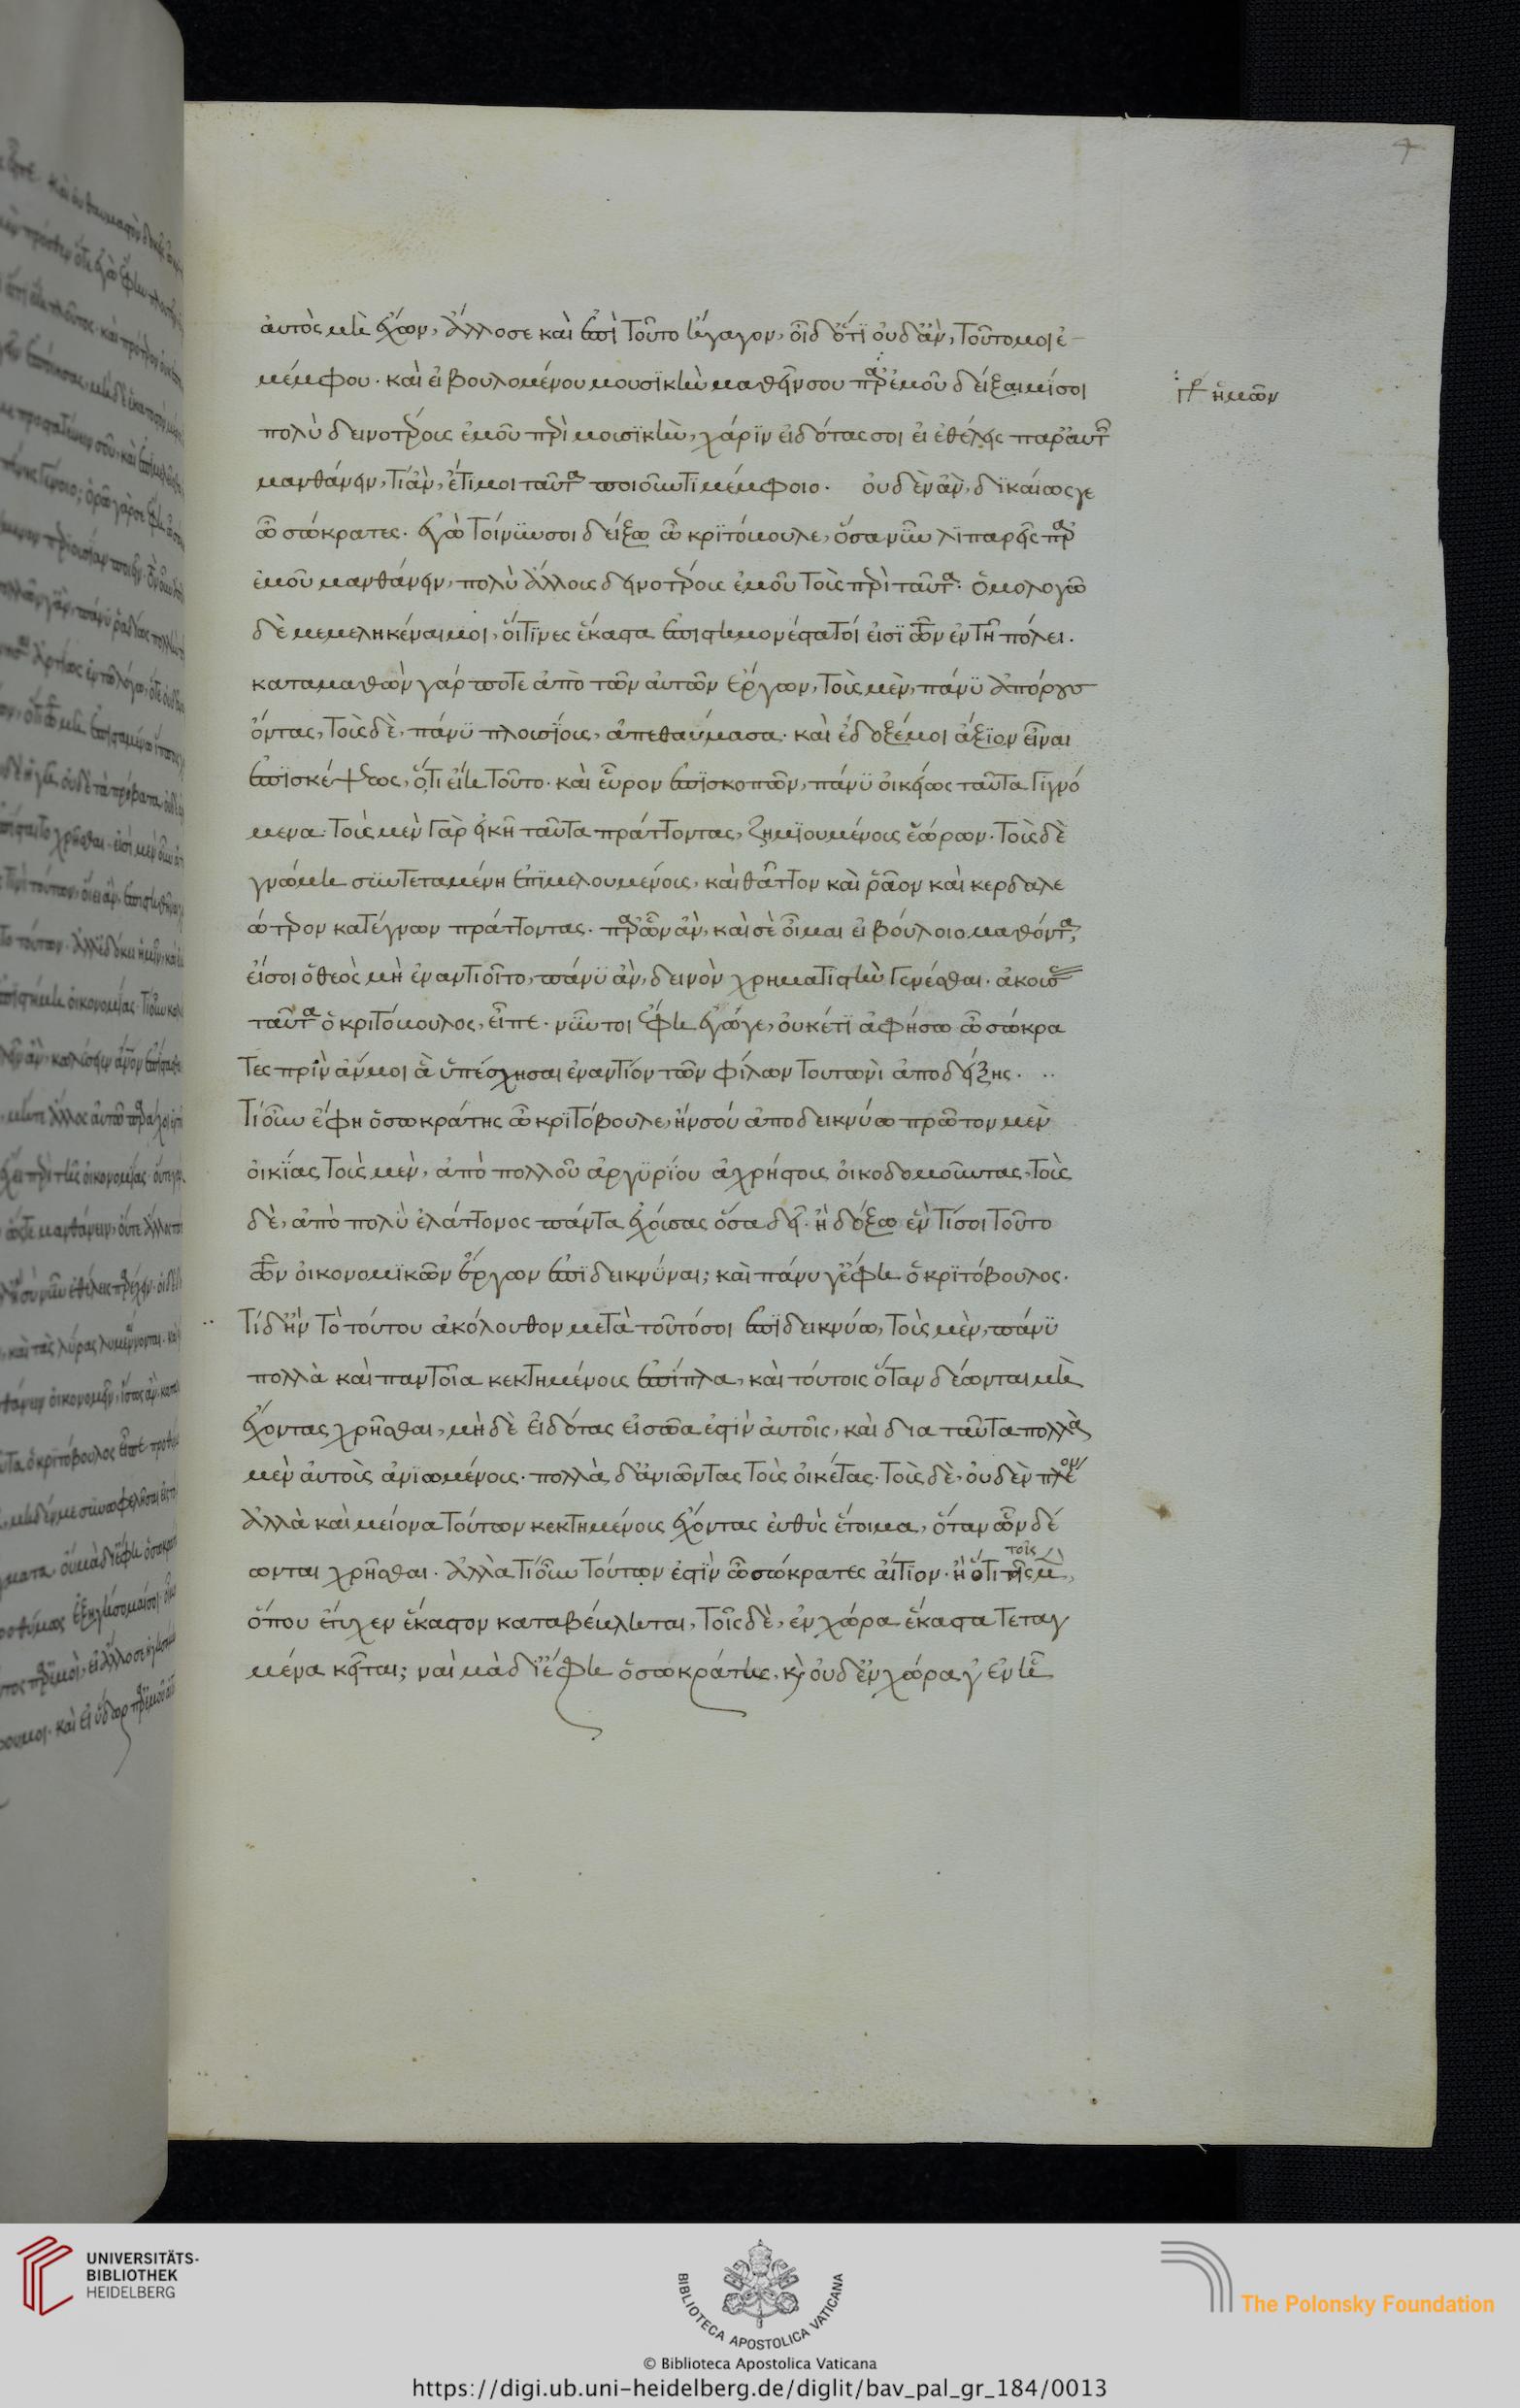 4
αὐτὸς μὴ ἔχων, ἄλλοσε καὶ ἐπὶ τοῦτο ἤγαγον, οἶδ ὅτι οὐδ ἂν, τοῦτο μοι ἐ-
μέμφου. καὶ εἰ βουλομένου μουσϊκὴν μαθεῖν σου παρ' ἐμοῦ δείξαιμί σοι
παρ ἡμῶν
πολὺ δεινοτέρους ἐμοῦ περὶ μουσϊκὴν, χάρϊν εἰδότας σοι εἰ ἐθέλεις παρ' αὐτῶν
μανθάνειν, τί ἂν, ἔτι μοι ταῦτα ποιοῦντι μέμφοιο. οὐδὲν ἂν, δϊκαίως γε
ὦ σώκρατες. ἐγὼ τοίνϋν σοι δείξω ὦ κρϊτόβουλε, ὅσα νῦν λϊπαρεῖς παρ
ἐμοῦ μανθάνειν, πολὺ ἄλλους δεινοτέρους ἐμοῦ τοὺς περὶ ταῦτα. ὁμολογῶ
δὲ μεμεληκέναι μοι, οἵτϊνες ἕκαστα ἐπιστημονέστατοί εἰσϊ τῶν ἐν τῇ πόλει.
καταμαθὼν γάρ ποτε ἀπὸ τῶν αὐτῶν ἔργων, τοὺς μὲν, πάνϋ ἀπόρους
ὄντας, τοὺς δὲ, πάνϋ πλουσΐους, ἀπεθαύμασα. καὶ ἔδοξέ μοι ἄξϊον εἶναι
ἐπϊσκέψεως, ὅ,τι εἴη τοῦτο. καὶ εὗρον ἐπϊσκοπῶν, πάνϋ οἰκείως ταῦτα γϊγνό
μενα. τοὺς μὲν γὰρ εἰκῆ ταῦτα πράττοντας, ζημϊουμένους ἑώρων. τοὺς δὲ
γνώμη σϋντεταμένη ἐπϊμελουμένους, καὶ θᾶττον καὶ ῥᾶον καὶ κερδαλε
ώτερον κατέγνων πράττοντας. παρ' ὧν ἂν, καὶ σὲ οἶμαι εἰ βούλοιο μαθόντα,
εἴ σοι ὁ θεὸς μὴ ἐναντιοῖτο, πάνϋ ἂν, δεινὸν χρηματϊστὴν γενέσθαι. ἀκούσας
ταῦτα ὁ κριτόβουλος, εἶπε. νῦν τοι ἔφη ἐγώγε, οὐκέτϊ ἀφήσω ὦ σώκρα
τες πρὶν ἄν μοι ἃ ὑπέσχησαι ἐναντίον τῶν φίλων τουτωνὶ ἀποδείξης.
Τί οὖν ἔφη ὁ σωκράτης ὦ κρϊτόβουλε, ἤν σοί ἀποδεικνύω πρῶτον μὲν
οἰκΐας τοὺς μὲν, ἀπὸ πολλοῦ ἀργϋρΐου ἀχρήστους οἰκοδομοῦντας, τοὺς
δὲ, ἀπὸ πολὺ ἐλάττονος πάντα ἐχούσας ὅσα δεῖ. ἦ δόξω ἕν τί σοι τοῦτο
τῶν οἰκονομϊκῶν ἔργων ἐπϊδεικνϋναι; καὶ πάνυ γ' ἔφη ὁ κρϊτόβουλος.
Τί δ' ἢν τὸ τούτου ἀκόλουθον μετὰ τοῦτό σοι ἐπϊδεικνύω, τοὺς μὲν, πάνϋ
πολλὰ καὶ παντοῖα κεκτημένους ἔπιπλα, καὶ τούτοις ὅταν δέωνται μὴ
ἔχοντας χρῆσθαι, μὴδὲ εἰδότας εἰ σῶα ἐστὶν αὐτοῖς, καὶ δια ταῦτα πολλὰ
μὲν αὐτοὺς ἀνϊωμένους. πολλὰ δ' ἀνιῶντας τοὺς οἰκέτας. τοὺς δὲ, οὐδὲν πλέον
ἀλλὰ καὶ μείονα τούτων κεκτημένους ἔχοντας εὐθὺς ἕτοιμα, ὅταν ὧν δέ
ωνται χρῆσθαι. ἀλλὰ τί οὖν τούτων ἐστϊν ὦ σώκρατες αἴτϊον. ἢ ὅτι τοῖς μὲν,
ὅπου ἔτυχεν ἕκαστον καταβέβληται, τοῖς δὲ, ἐν χώρα ἕκαστα τεταγ
μένα κεῖται; ναὶ μὰ δΐ ἔφη ὁ σωκράτης, καὶ οὐδ' ἐν χώρα γ' ἐν ᾗ
UNIVERSITÄTS-
BIBLIOTHEK
HEIDELBERG
BIBLIOTECA APOSTOLICA VATICANA
The Polonsky Foundation
© Biblioteca Apostolica Vaticana
https://digi.ub.uni-heidelberg.de/diglit/bav_pal_gr_184/0013